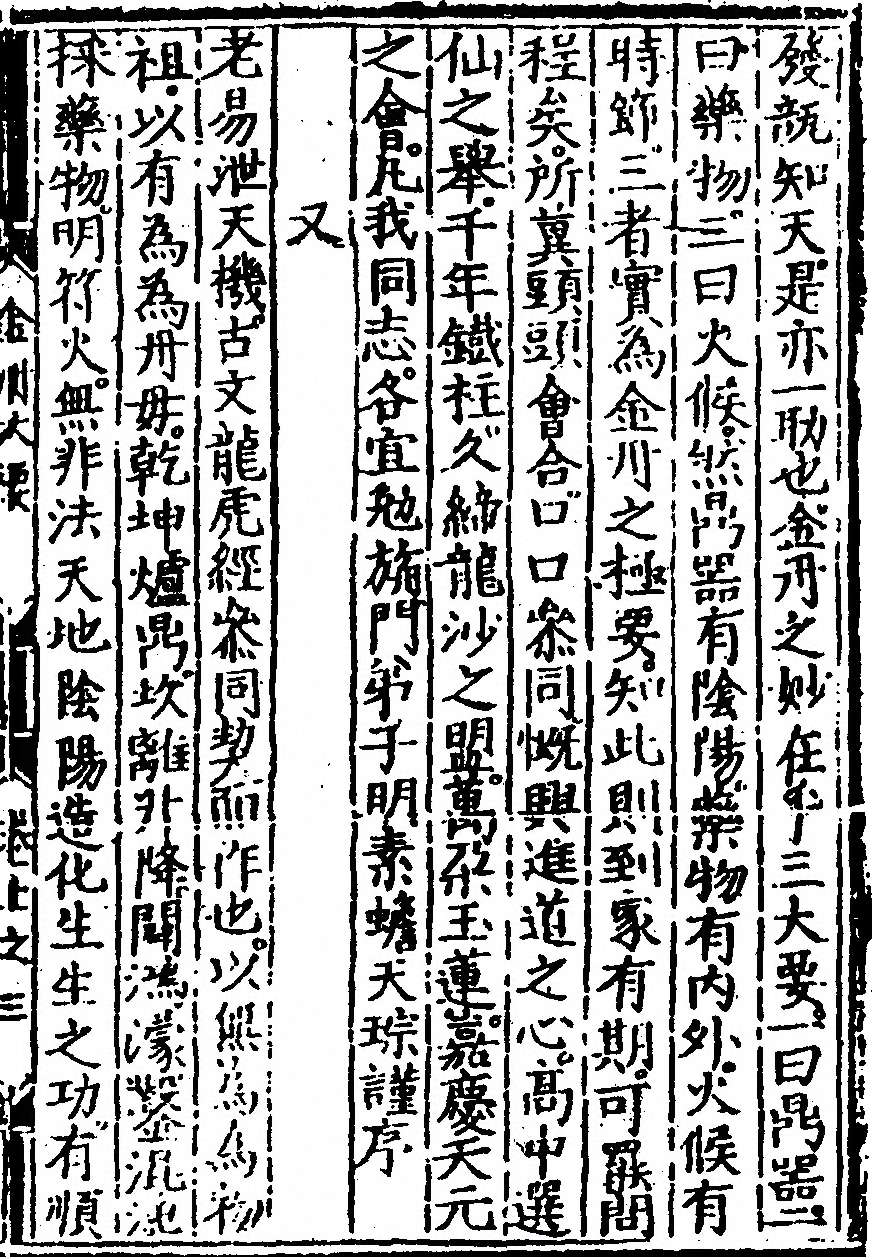 發翫知天是亦一助也金丹之妙在乎三大要一曰鼎器二
曰藥物三曰火候然鼎器有陰陽藥物有內外火候有
時節三者實為金丹之極要知此則到家有期可罷問
程矣所冀頭頭會合口口叅同慨興進道之心高中選
仙之舉千年鐵柱久締龍沙之盟萬朶玉蓮嘉慶天元
之會凡我同志各宜勉旃門弟子明素蟾天琮謹序
又
老易泄天機古文龍虎經叅同契而作也以無為為物
祖以有為為丹毋乾坤爐鼎坎離升降闢鴻濛鑿混沌
採藥物明符火無非法天地陰陽造化生生之功有順
金丹大要 卷上之三